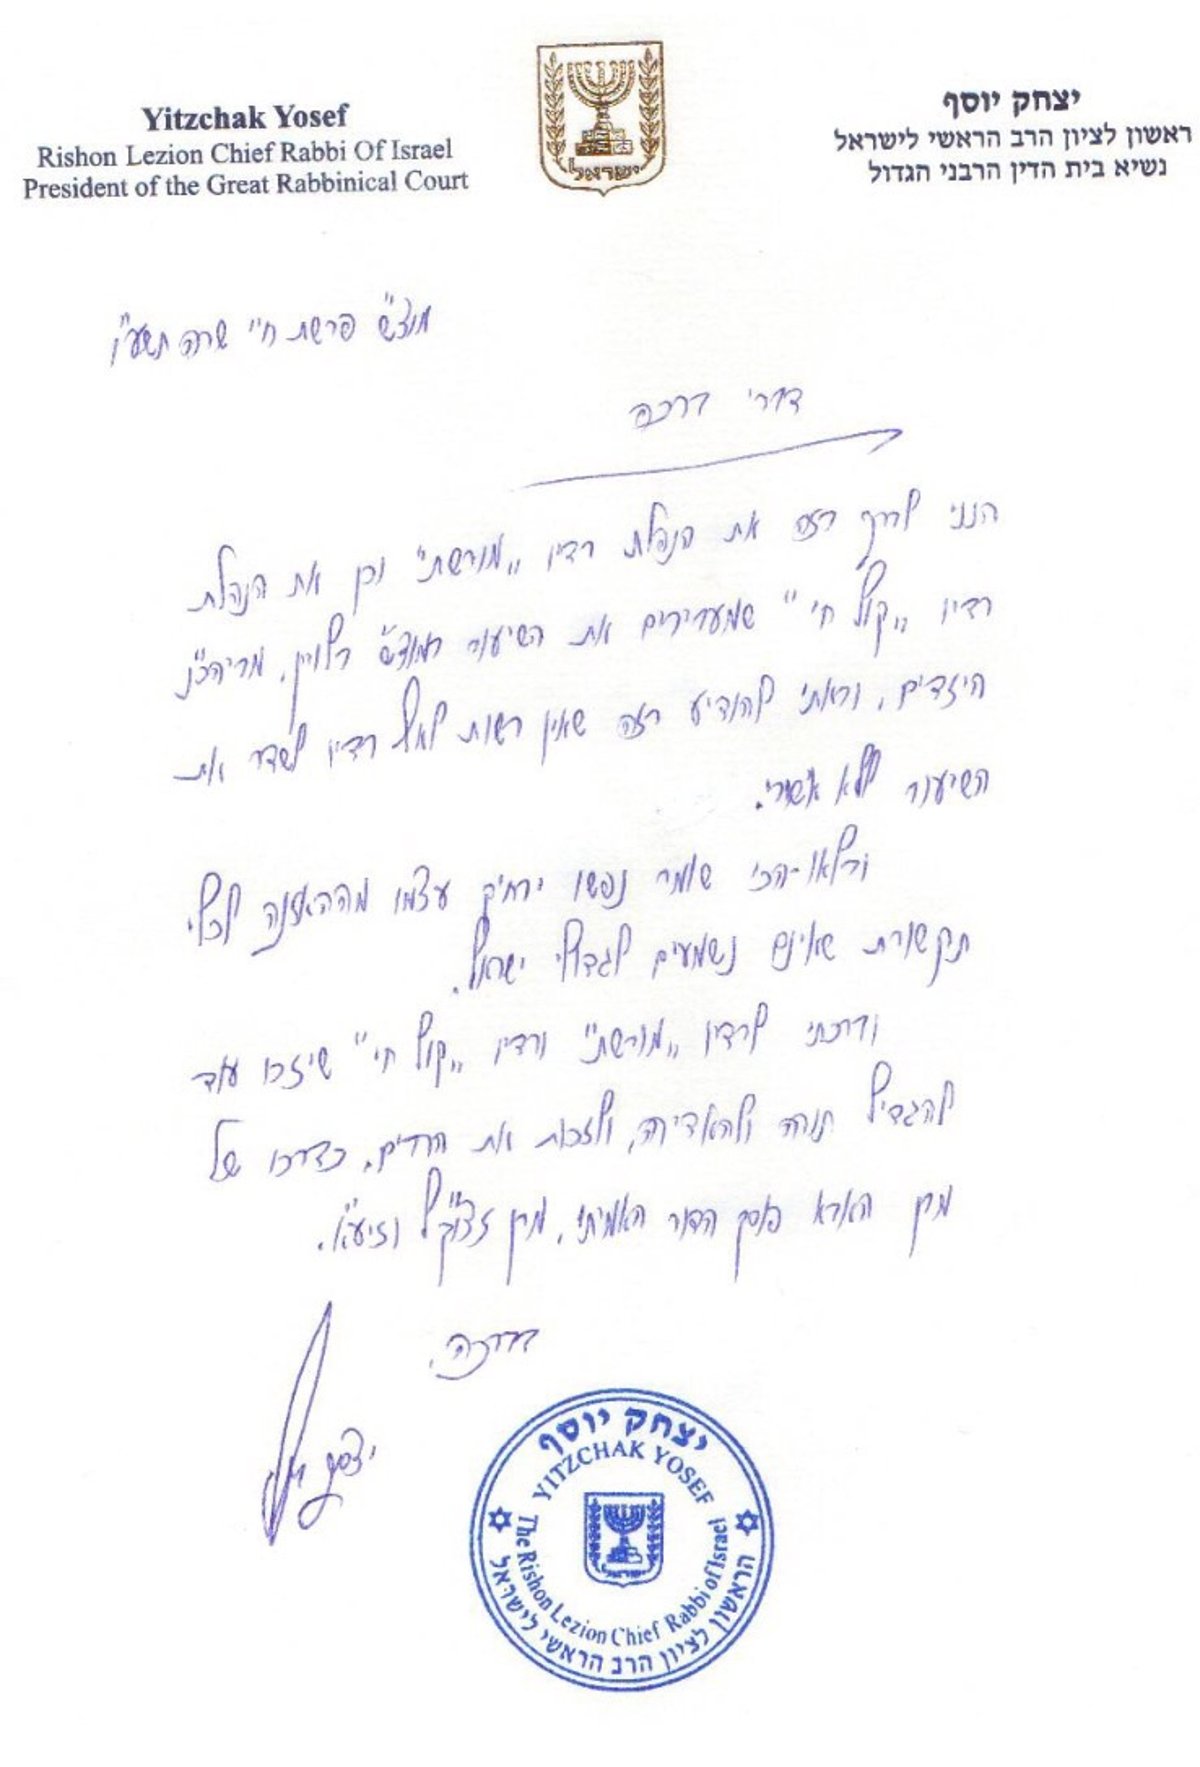 Yitzchak Yosef
Rishon Lezion Chief Rabbi Of Israel
President of the Great Rabbinical Court
ישראל
יצחק יוסף
ראשון לציון הרב הראשי לישראל
נשיא בית הדין הרבני הגדול
מוצ"ש פרשת חיי שרה תשע"ו
דברי ברכה
הנני לברך בזה את הנהלת רדיו "מורשת" וכן את הנהלת
רדיו "קול חי" שמעבירים את השיעור במוצ"ש בלויין, מביהכ"נ
היזדים, ובאתי להודיע בזה שאין רשות לאף רדיו לשדר את
השיעור ללא אישורי.
ובלאו-הכי שומר נפשו ירחיק עצמו מההאזנה לכלי
תקשורת שאינם נשמעים לגדולי ישראל.
וברכתי לרדיו "מורשת" ורדיו "קול חי" שיזכו עוד
להגדיל תורה ולהאדירה, ולזכות את הרבים, כדרכו של
מרן האבא פוסק הדור האמיתי, מרן זצוק"ל וזיע"א.
בברכה,
יצחק יוסף
יצחק יוסף
YITZCHAK YOSEF
The Rishon Lezion Chief Rabbi of Israel
הראשון לציון הרב הראשי לישראל